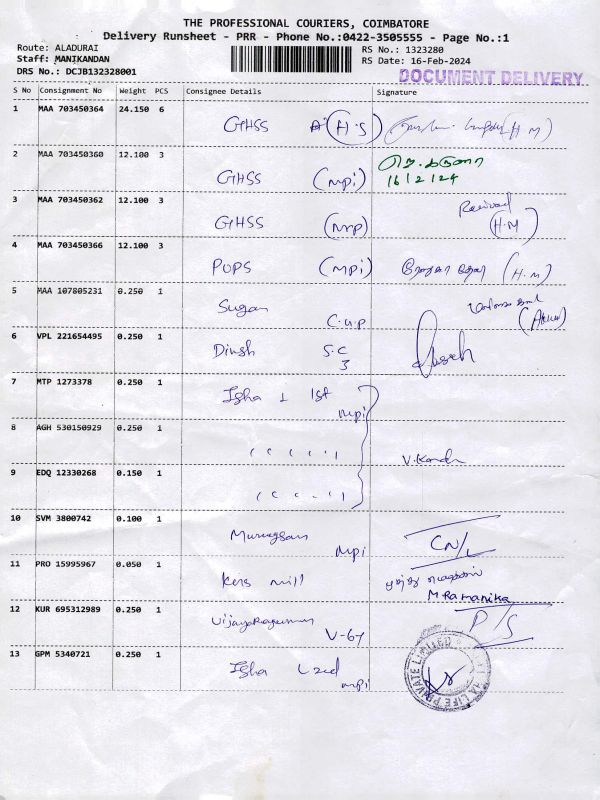 THE PROFESSIONAL COURIERS, COIMBATORE
Delivery Runsheet - PRR - Phone No.:0422-3505555 - Page No.:1
Route: ALADURAI
RS No.: 1323280
Staff: MANIKANDAN
RS Date: 16-Feb-2024
DRS No.: DCJB132328001
DOCUMENT DELIVERY
S No Consignment No Weight PCS Consignee Details Signature
1 MAA 703450364 24.150 6
GHSS (H.S) (H.M)
2 MAA 703450360 12.100 3
GHSS (mpi) 16/2/24
3 MAA 703450362 12.100 3
Received
GHSS (H.M)
4 MAA 703450366 12.100 3
PUPS (mpi) (H.M)
5 MAA 107805231 0.250 1
Sugan
6 VPL 221654495 0.250 1
Dinsh S.C
3
7 MTP 1273378 0.250 1
Isha 1 1st
mpi
8 AGH 530150929 0.250 1
9 EDQ 12330268 0.150 1
10 SVM 3800742 0.100 1
mpi CN/L
11 PRO 15995967 0.050 1
mill
M Ramanika
12 KUR 695312989 0.250 1
P/S
13 GPM 5340721 0.250 1
Isha
mpi
LIFE PRIVATE LIMITED